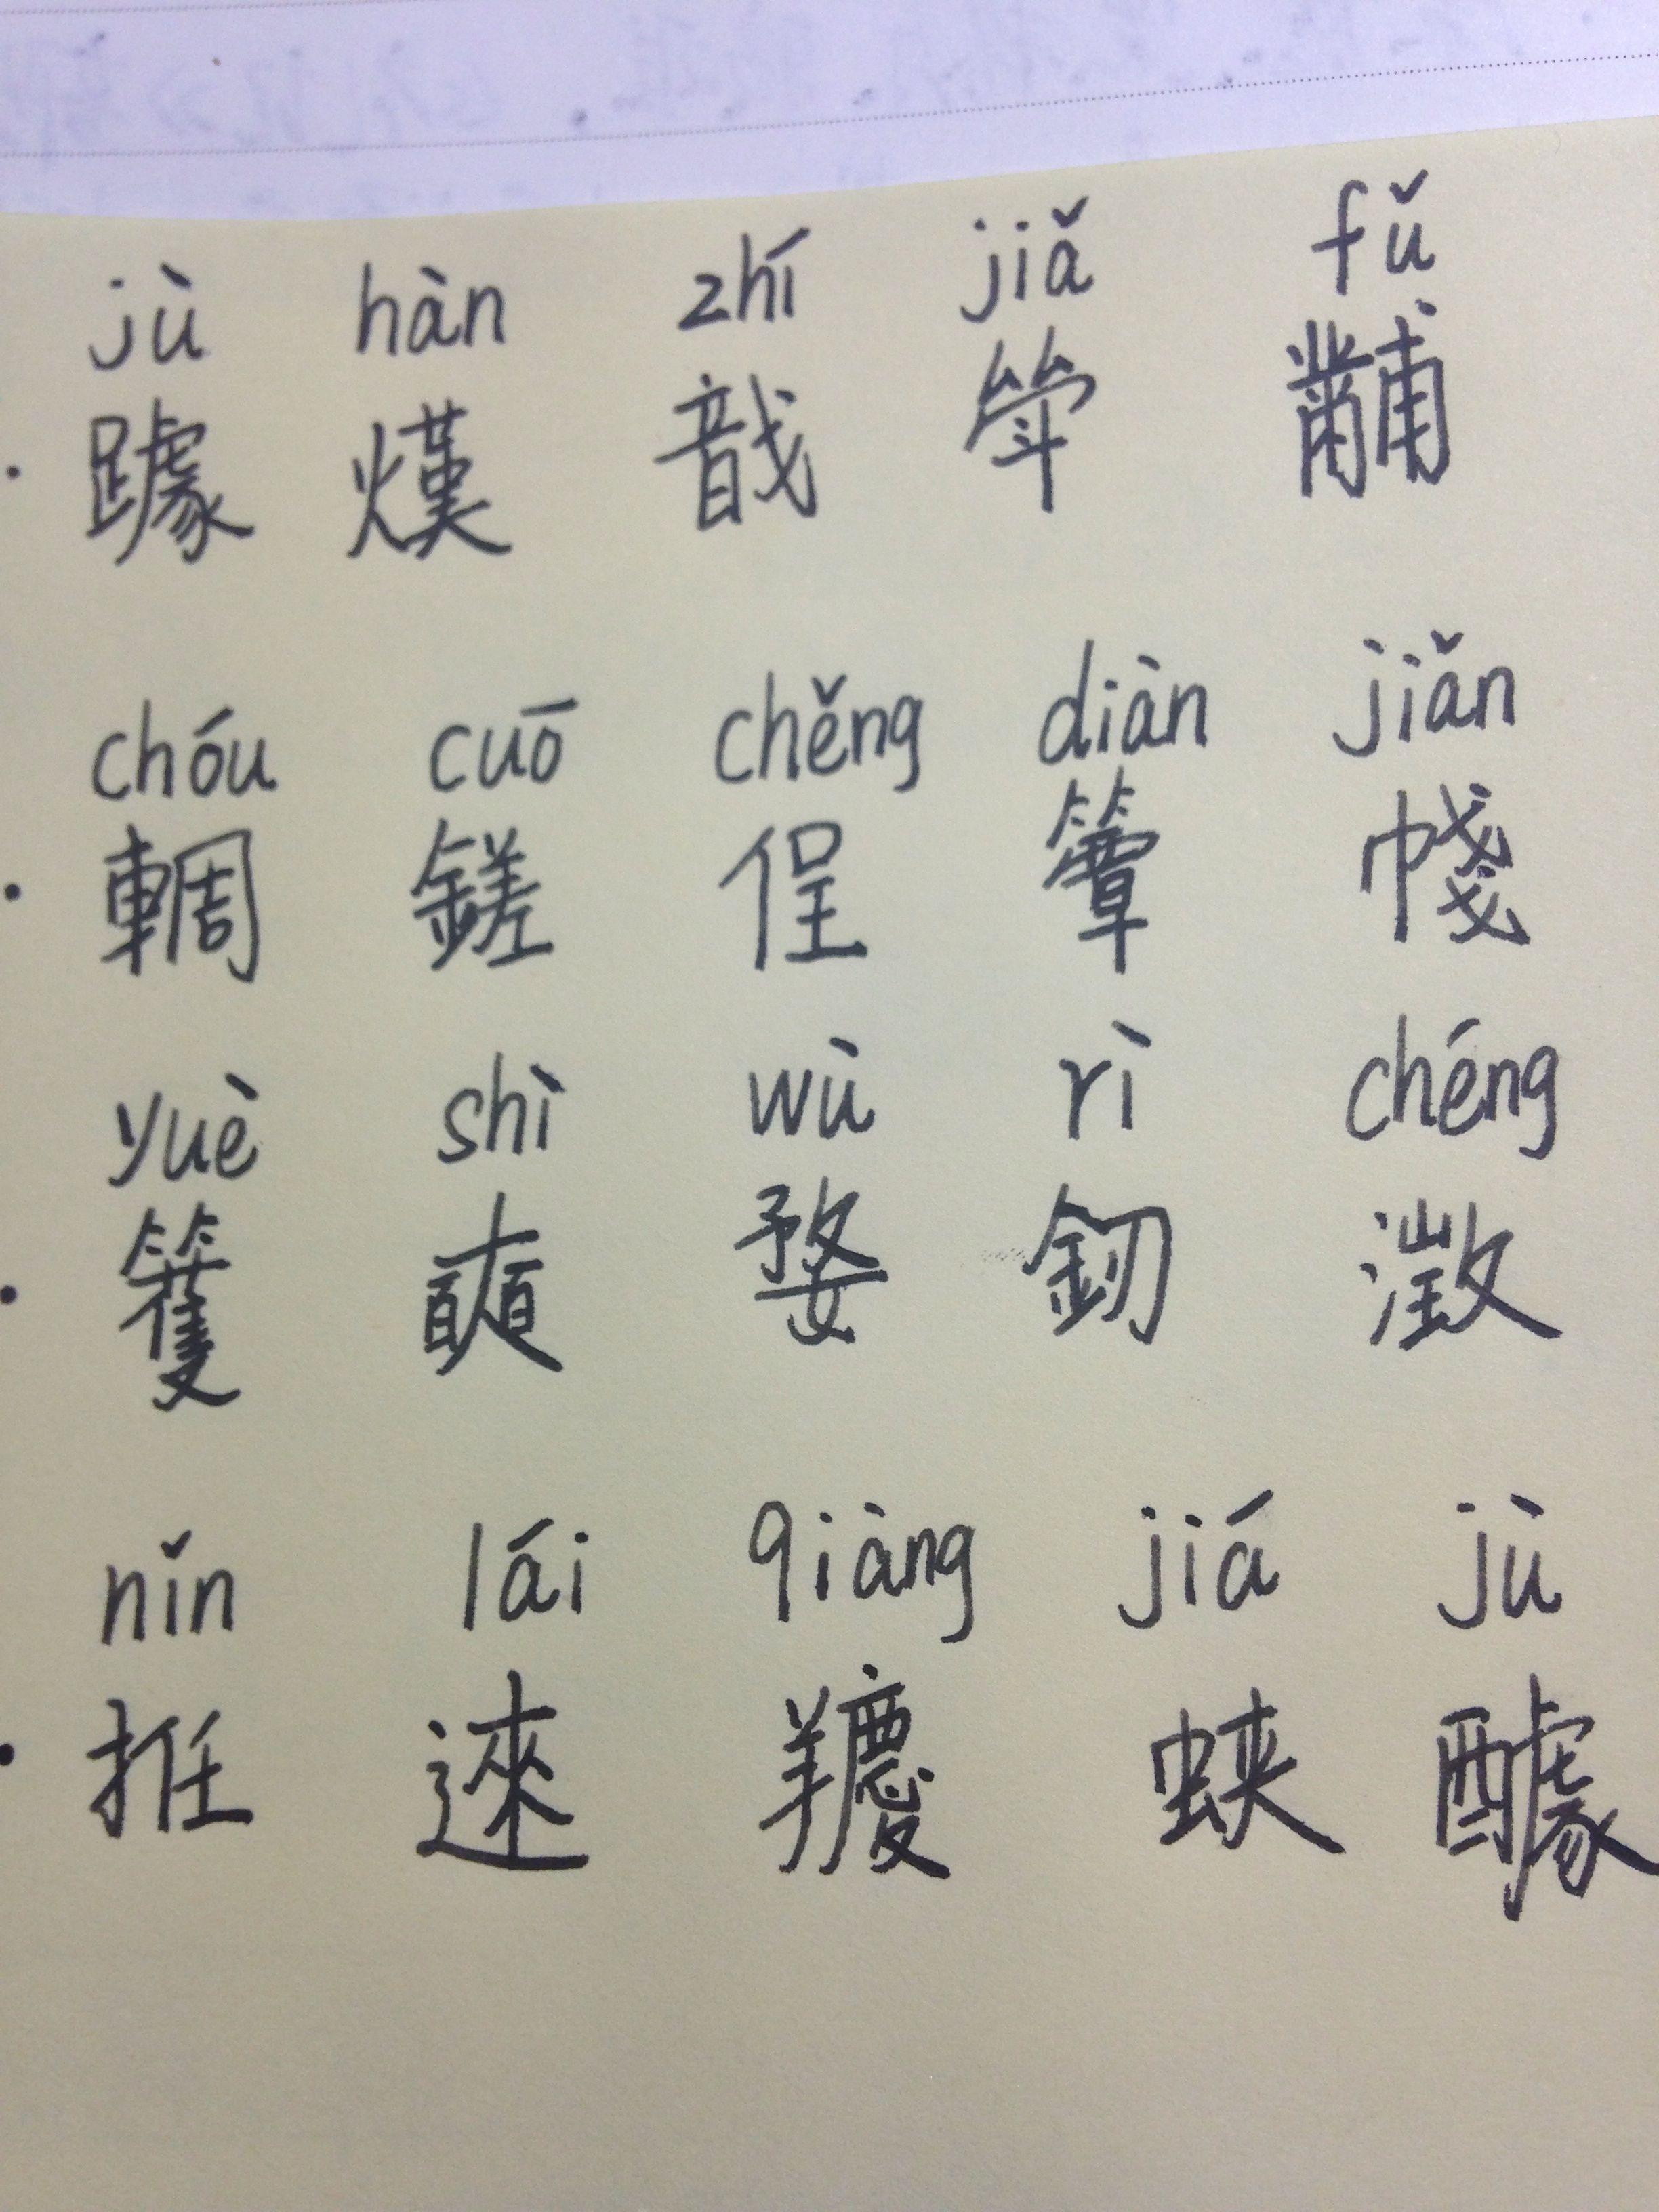 jù hàn zhí jiǎ fǔ
躆 熯 戠 斝 黼
chóu cuō chěng diàn jiǎn
輖 鎈 侱 簟 帴
yuè shì wù rì chéng
籆 奭 婺 釰 澂
nǐn lái qiàng jiá jù
拰 逨 羻 蛺 醵